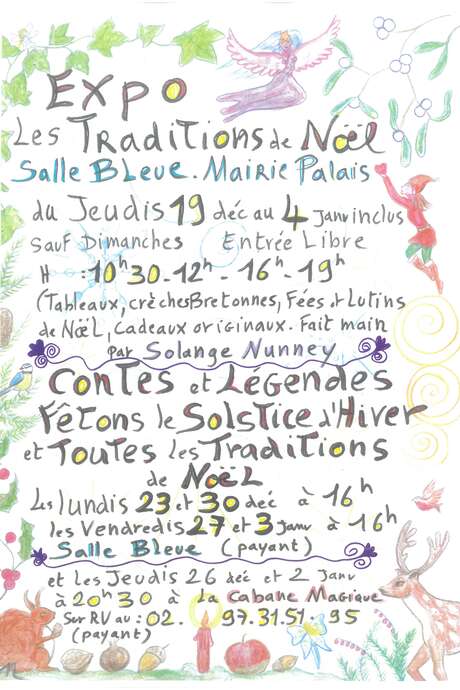 Expo
Les Traditions de Noël
Salle Bleue. Mairie Palais
du Jeudis 19 déc au 4 janv inclus
Sauf Dimanches Entrée Libre
H : 10h30-12h - 16h - 19h
(Tableaux, crèches Bretonnes, Fées et Lutins
de Noël, Cadeaux originaux. Fait main
par Solange Nunney
Contes et Légendes
Fêtons le Solstice d'Hiver
et Toutes les Traditions
de Noël
Les lundis 23 et 30 déc à 16h
les Vendredis 27 et 3 janv à 16h
Salle Bleue (payant)
et les Jeudis 26 déc et 2 Janv
à 20h30 à La Cabane Magique
Sur RV au : 02. 97.31.51-95
(payant)